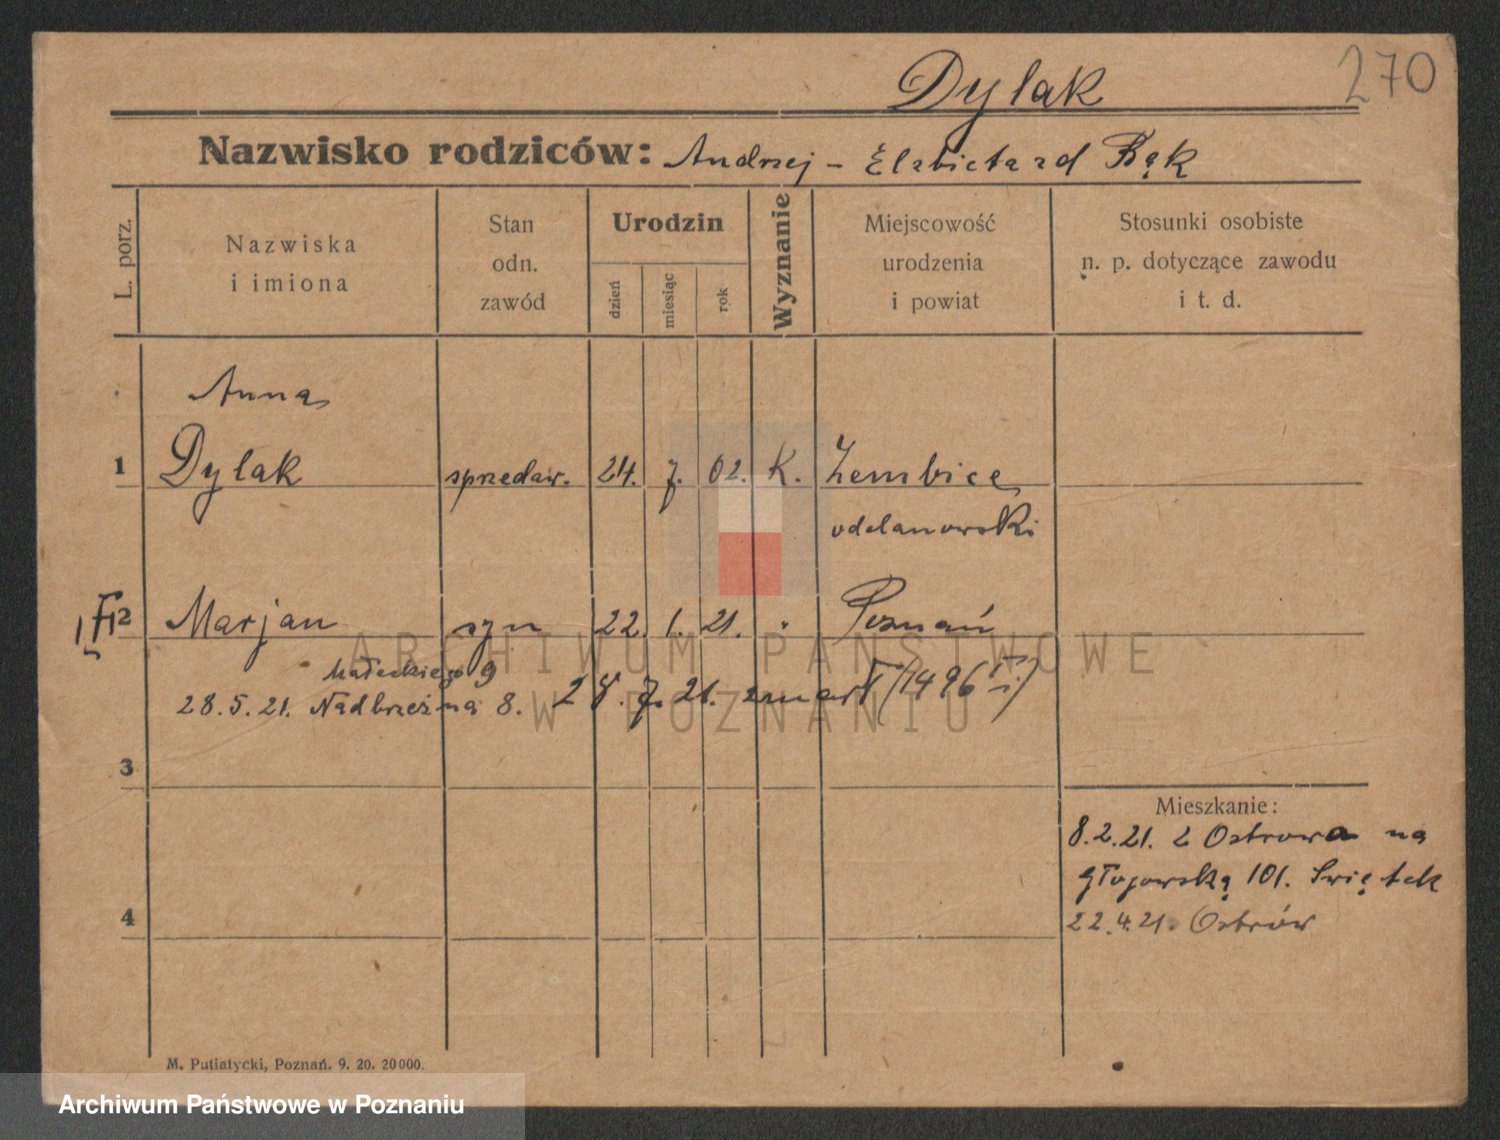 270
Dylak
Nazwisko rodziców: Andrzej – Elzbieta zd Bąk
L. porz.
Nazwiska i imiona
Stan odn. zawód
Urodzin
dzień
miesiąc
rok
Wyznanie
Miejscowość urodzenia i powiat
Stosunki osobiste n. p. dotyczące zawodu i t. d.
Anna
1 Dylak sprzedaw. 24. 7. 02. K. Zembice
odolanowski
2 Marjan syn 22. 1. 21. " Poznań
Małeckiego 9
28.5.21. Nadbrzeżna 8. 28. 7. 21. zmarł (1496
3
Mieszkanie:
8.2.21. z Ostrowa na
Głogowską 101. Świątek
4
22.4.21. Ostrów
M. Putiatycki, Poznań. 9. 20. 20000.
ARCHIWUM PAŃSTWOWE
W POZNANIU
Archiwum Państwowe w Poznaniu